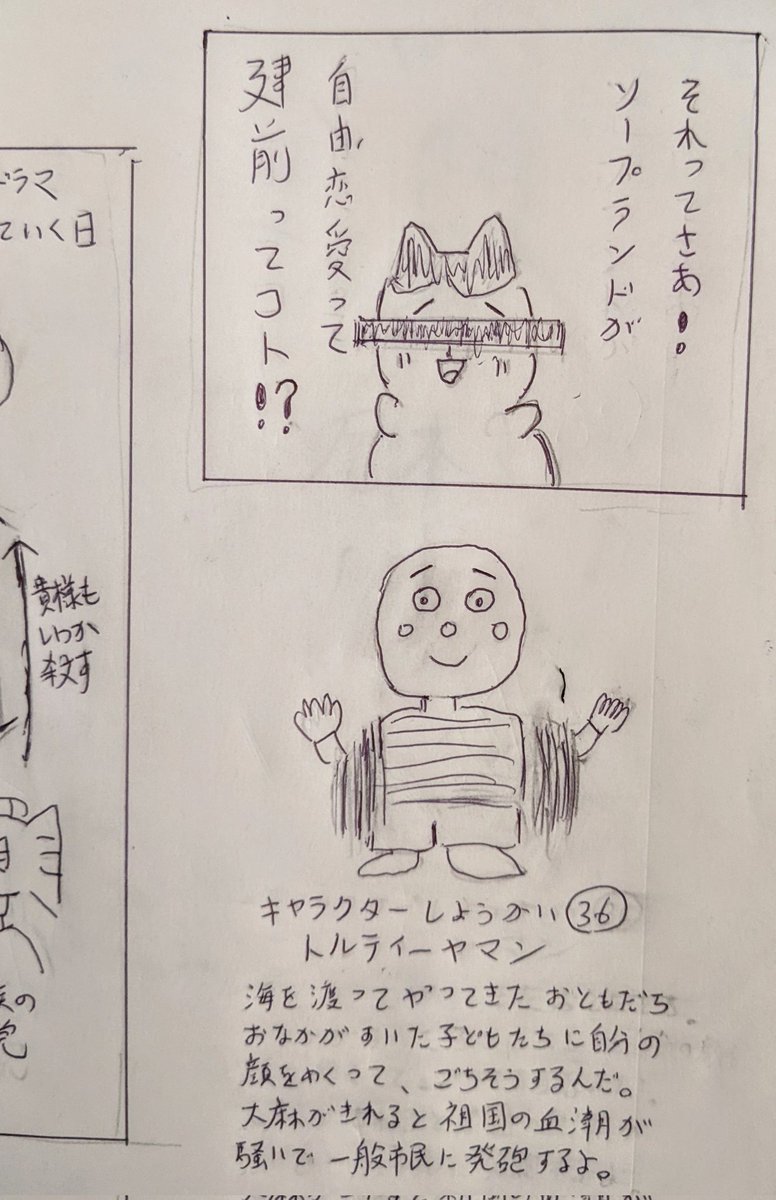 それってさあ!
ソープランドが
自由恋愛って
建前ってコト!?
ドラマ
ていく日
貴様も
いつか
殺す
キャラクターしょうかい㊱
トルティーヤマン
海を渡ってやってきたおともだち
おなかがすいた子どもたちに自分の
顔をめくって、ごちそうするんだ。
大麻がきれると祖国の血潮が
騒いで一般市民に発砲するよ。